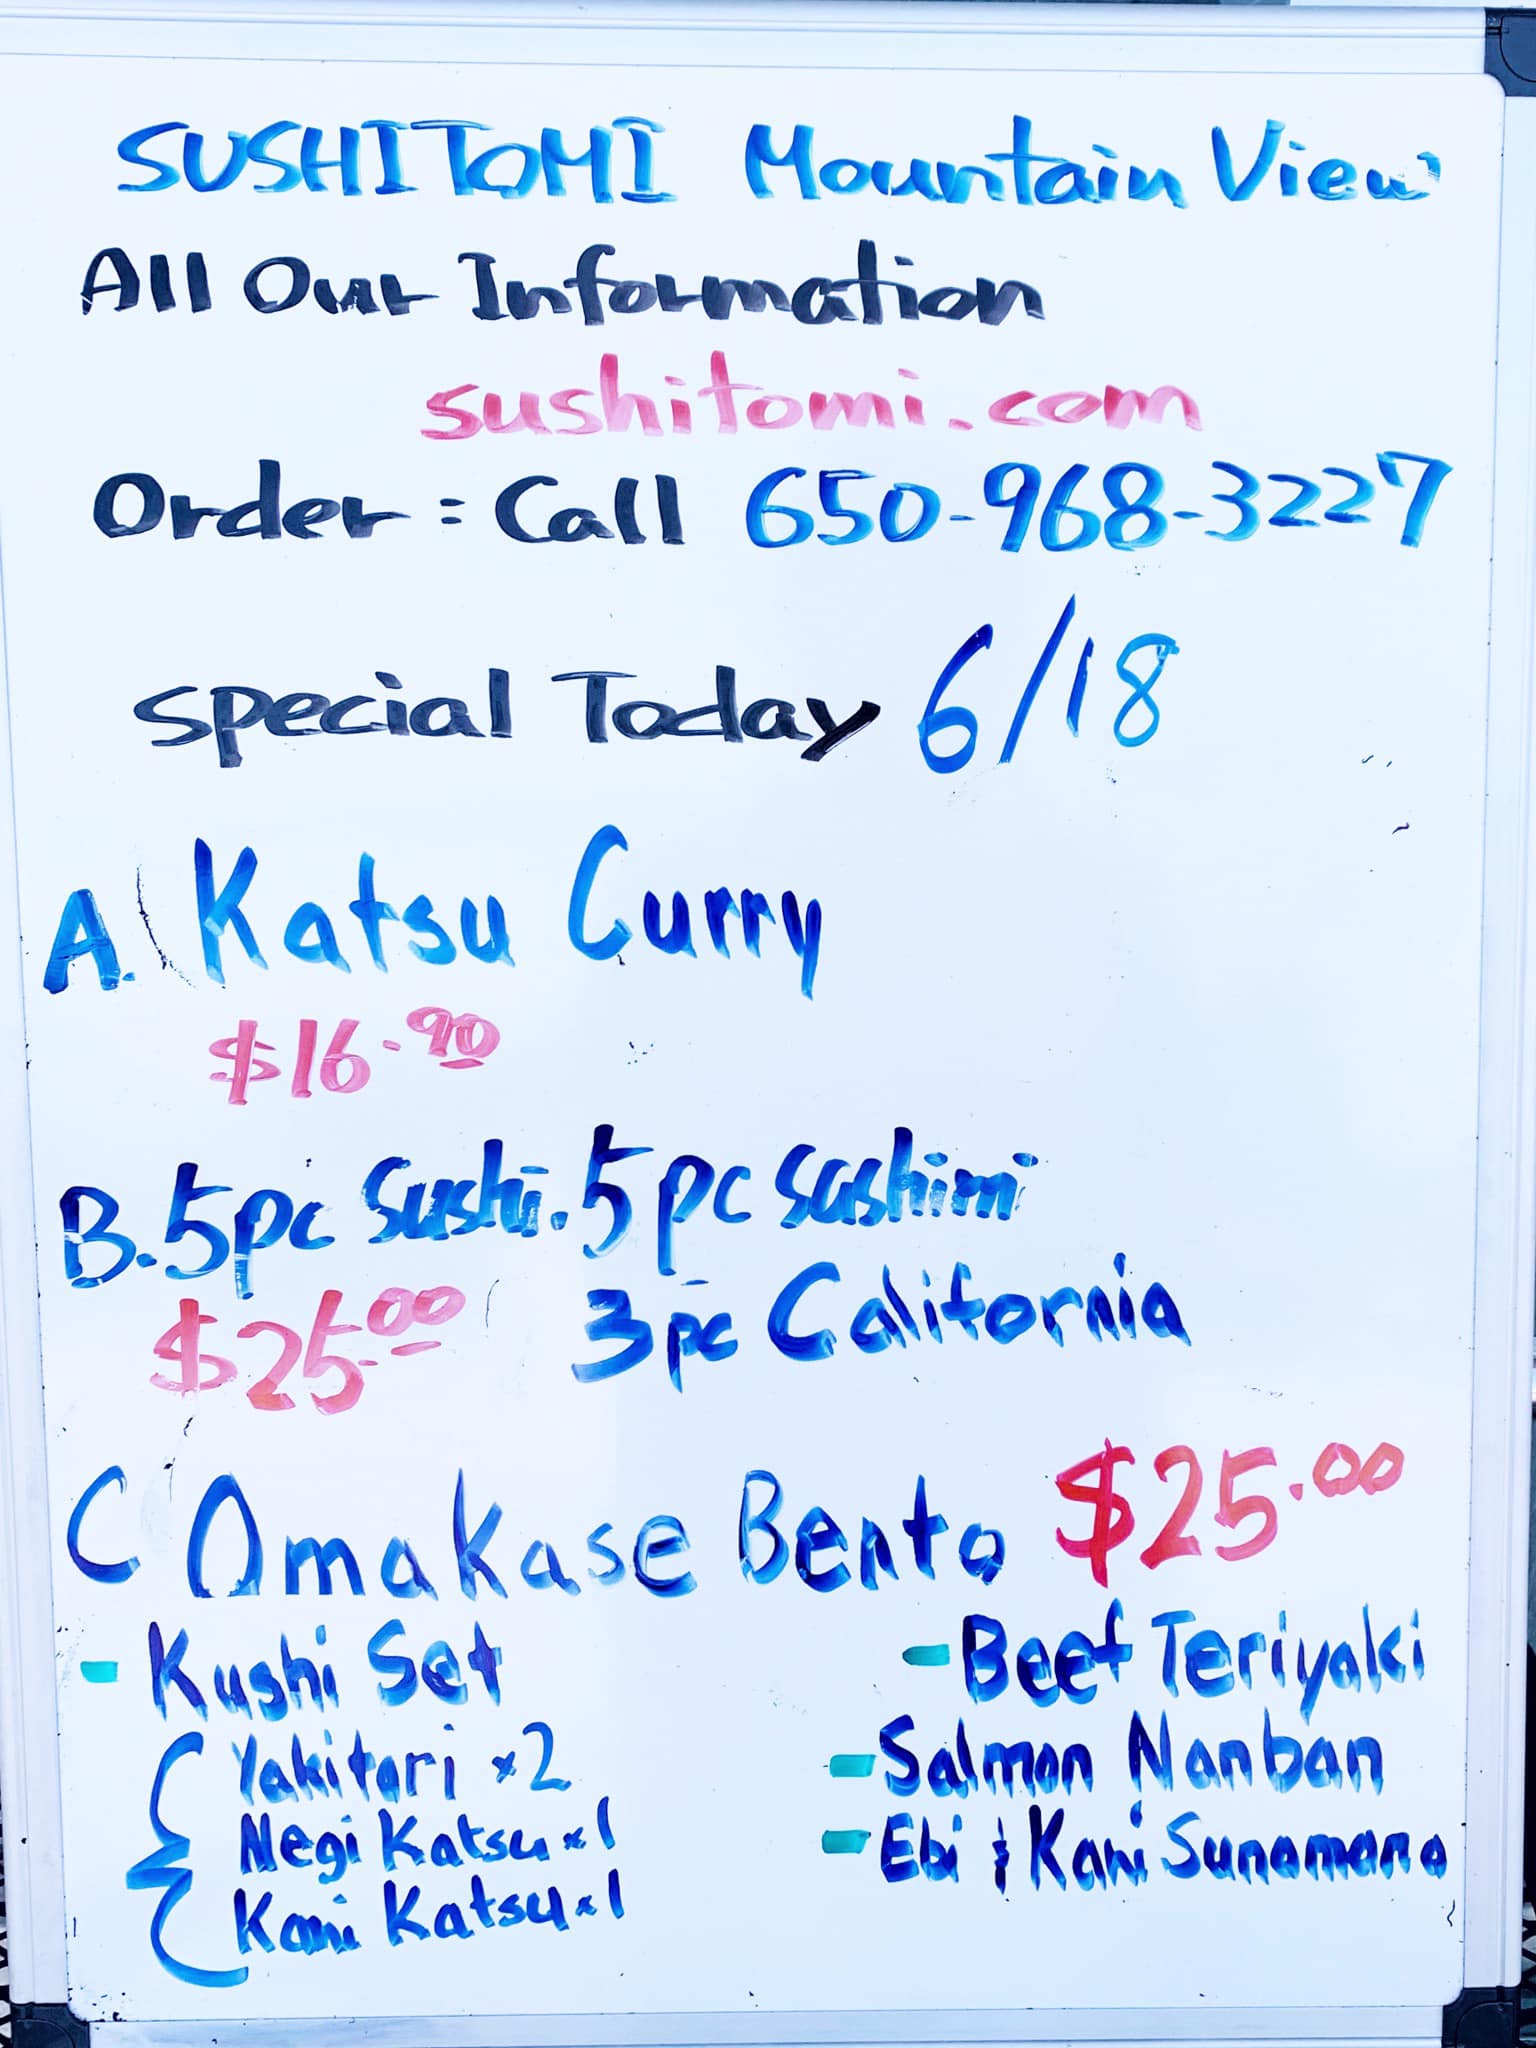 SUSHITOMI Mountain View
All Our Information
sushitomi.com
Order: Call 650-968-3227
Special Today 6/18
A. Katsu Curry
$16.90
B. 5pc Sushi. 5pc sashimi
$25.00 3pc California
C Omakase Bento $25.00
- Kushi Set
Yakitori x2
Negi Katsu x1
Kani Katsu x1
- Beef Teriyaki
- Salmon Nanban
- Ebi & Kani Sunomono